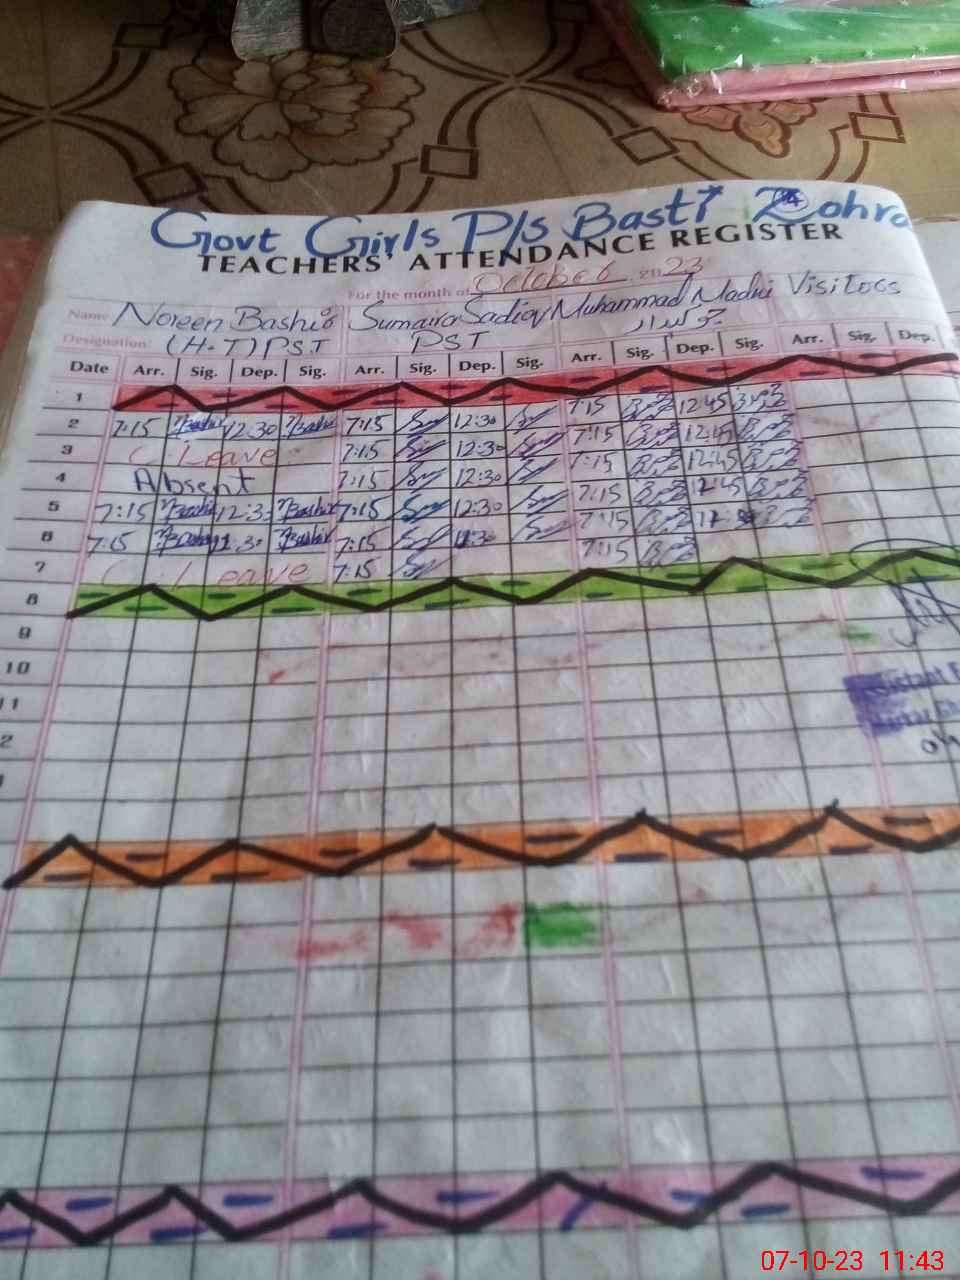 Govt Girls P/s Basti Zohra
TEACHERS' ATTENDANCE REGISTER
For the month of October 2023
Name Noreen Bashir Sumaira Sadiq Muhammad Madni Visitors
Designation: (H.T) PST PST چوکیدار
Date Arr. Sig. Dep. Sig. Arr. Sig. Dep. Sig. Arr. Sig. Dep. Sig. Arr. Sig. Dep.
1
2 7:15 Bashir 12:30 Bashir 7:15 12:30 7:15 12:45
3 C. Leave 7:15 12:30 7:15 12:45
4 Absent 7:15 12:30 7:15 12:45
5 7:15 Bashir 12:30 Bashir 7:15 12:30 7:15 12:45
6 7:15 Bashir 12:30 Bashir 7:15 12:30 7:15
7 C. Leave 7:15 7:15
8
9
10
11
12
07-10-23 11:43